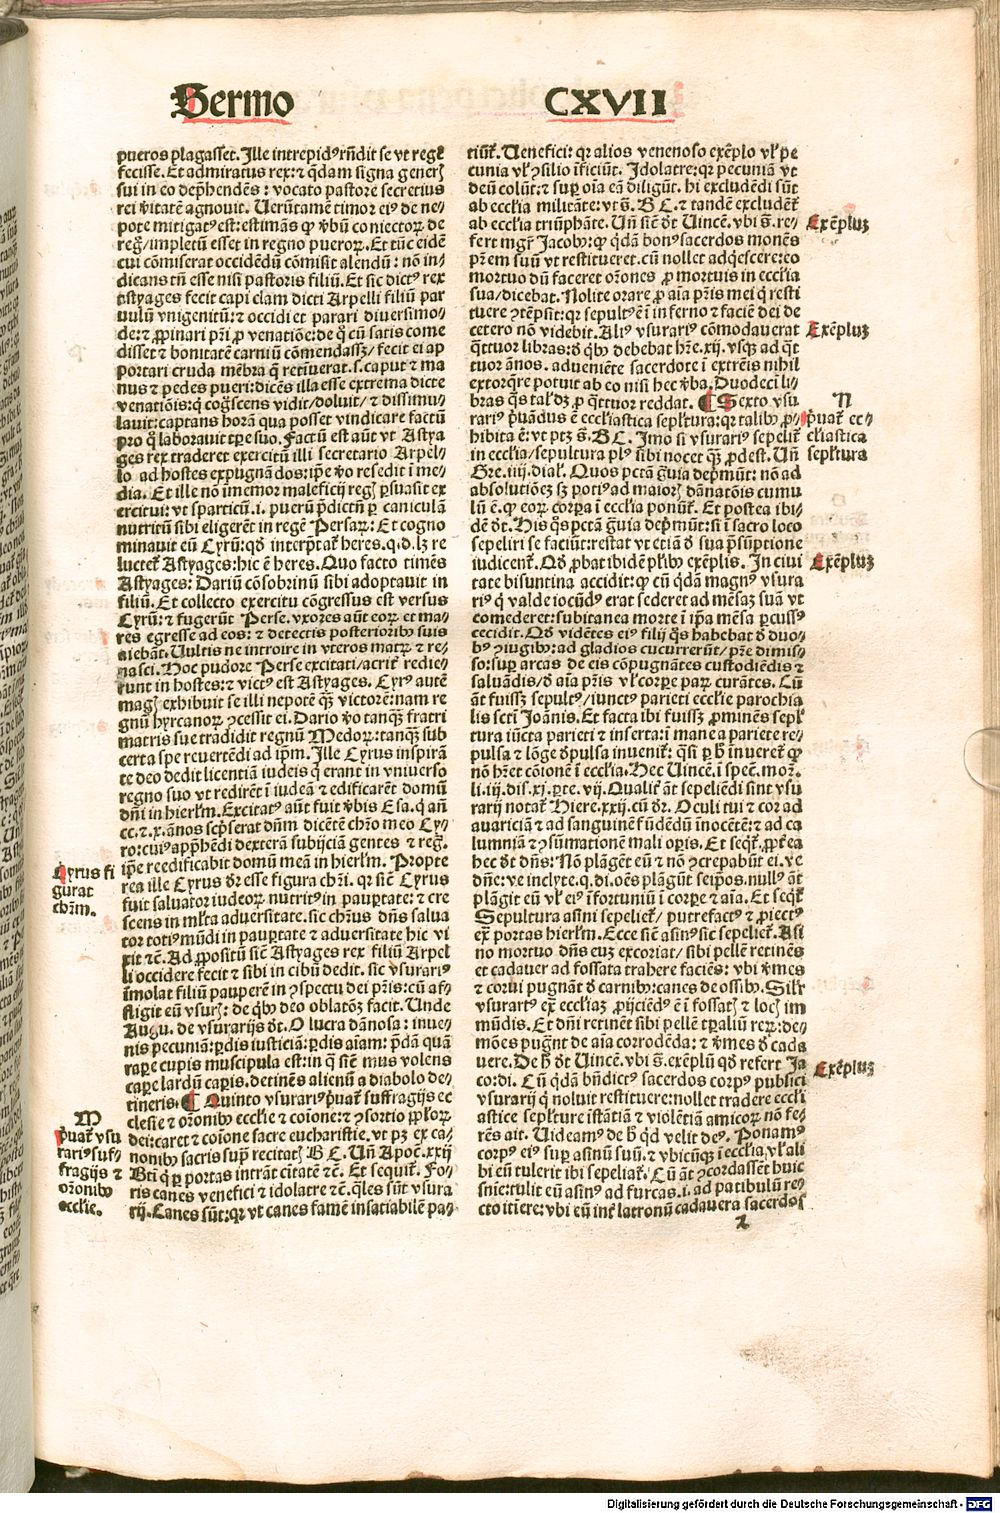 Sermo CXVII
pueros plagasset. Ille intrepidꝰ rñdit se vt regē
fecisse. Et admiratus rex: ⁊ q̄dam signa generꝭ
sui in eo dep̄hendēs: vocato pastore secretius
rei v̄itatē agnouit. Verūtamē timor eiꝰ de ne⸗
pote mitigatꝰ est: estimās ꝙ v̄bū coniectoꝝ de
regꝭ/ impletū esset in regno pueroꝝ. Et tūc eidē
cui cōmiserat occidēdū cōmisit alendū: nō in⸗
dicans tñ esse nisi pastoris filiū. Et sic dictꝰ rex
astyages fecit capi clam dicti Arpelli filiū par
uulū vnigenitū: ⁊ occidi et parari diuersimo⸗
de: ⁊ ꝓpinari p̄ri ꝓ venatiōe: de q̄ cū satis come
disset ⁊ bonitatē carniū cōmendassꝫ/ fecit ei ap
portari cruda mēbra q̄ retiuerat. s. caput ⁊ ma
nus ⁊ pedes pueri: dicēs illa esse extrema dicte
venatiōis: q̄ cogꝭscens vidit/ doluit/ ⁊ dissimu⸗
lauit: captans horā qua posset vindicare factū
pro q̄ laborauit tꝑe suo. Factū est aūt vt Astya
ges rex traderet exercitū illi secretario Arpel⸗
lo ad hostes expugnādos: ip̄e v̄o resedit ī me⸗
dia. Et ille nō īmemor maleficij regꝭ ꝑsuasit ex
ercitui: vt sparticū. i. puerū p̄dictū ꝑ caniculā
nutritū sibi eligerēt in regē Persaꝝ: Et cogno
minauit eū Cyrū: qd̄ interp̄tat᷑ heres. q. d. lꝫ re
luctet᷑ Astyages: hic ē heres. Quo facto timēs
Astyages: Dariū cōsobrinū sibi adoptauit in
filiū. Et collecto exercitu cōgressus est versus
Cyrū: ⁊ fugerūt Perse. vxores aūt eoꝝ et ma⸗
res egresse ad eos: ⁊ detectis posterioribꝰ suis
aiebāt. Vultis ne introire in vteros matꝝ ⁊ re⸗
nasci. Hoc pudore Perse excitati/ acrit᷑ redie⸗
runt in hostes: ⁊ victꝰ est Astyages. Cyrꝰ autē
magꝭ exhibuit se illi nepotē qꝫ victorē: nam re
gnū hyrcanoꝝ ꝯcessit ei. Dario v̄o tanqꝫ fratri
matris sue tradidit regnū Medoꝝ: tanqꝫ sub
certa spe reuertēdi ad ip̄m. Ille Cyrus inspira
te deo dedit licentiā iudeis q̄ erant in vniuerso
regno suo vt redirēt ī iudeā ⁊ edificarēt domū
dn̄i in hierl̄m. Excitatꝰ aūt fuit v̄bis Esa. q̄ añ
cc. ⁊. x. ānos scp̄serat dn̄m dicētē chr̄o meo Cy⸗
ro: cuiꝰ app̄hēdi dexterā subijciā gentes ⁊ regꝭ.
ip̄e reedificabit domū meā in hierl̄m. Propte
rea ille Cyrus d̄r esse figura chr̄i. qr sic̄ Cyrus
fuit saluator iudeoꝝ nutritꝰ in pauꝑtate: ⁊ cre
scens in ml̄ta aduersitate. sic chr̄us dn̄s salua
tor totiꝰ mūdi in pauꝑtate ⁊ aduersitate hic vi
xit ⁊c̄. Ad ꝓpositū sic̄ Astyages rex filiū Arpel
li occidere fecit ⁊ sibi in cibū dedit. sic vsurariꝰ
īmolat filiū pauperē in ꝯspectu dei p̄ris: cū af⸗
fligit eū vsurꝭ: de q̄bꝰ deo oblatōeꝫ facit. Unde
Augu. de vsurarijs d̄t. O lucra dānosa: inue⸗
nis pecuniā: ꝑdis iusticiā: ꝑdis aīam: p̄dā quā
raꝑe cupis muscipula est: in q̄ sic̄ mus volens
caꝑe lardū caꝑis. detinēs alienū a diabolo de⸗
tineris. ¶ Quinto vsurariꝰ p̄uat᷑ suffragijs ec
clesie ⁊ or̄onibꝰ ecclie ⁊ cōione: ⁊ ꝯsortio ppl̄oꝝ
dei: caret ⁊ cōione sacre eucharistie. vt pꝫ ex ca⸗
nonibꝰ sacris supͣ recitatꝭ B C. Uñ Apoc̄. xxij
Bt̄i q̄ ꝑ portas intrāt ciuitatē ⁊c̄. Et sequit᷑. Fo⸗
ris canes venefici ⁊ idolatre ⁊c̄. q̄les sūt vsura
rij. Canes sūt: qr vt canes famē insatiabilē pa⸗
Cyrus fi
gurat
chr̄m.
M
p̄uat᷑ vsu
rariꝰ suf⸗
fragijs ⁊
or̄onibꝰ
ecclie.
tiūt᷑. Uenefici: qr alios venenoso exēplo vl̓ pe
cunia vl̓ ꝯsilio īficiūt. Idolatre: qr pecuniā vt
deū colūt: ⁊ suꝑ oīa eā diligūt. hi excludēdi sūt
ab ecclīa militāte: vt s̄. B C. ⁊ tandē excludēt᷑
ab ecclīa triūphāte. Uñ sic̄ d̄t Uincē. vbi s̄. re⸗
fert mgr̄ Jacobꝰ: ꝙ q̄dā bonꝰ sacerdos monēs
p̄rem suū vt restitueret. cū nollet adq̄escere: eo
mortuo dū faceret or̄ones ꝓ mortuis in ecclīa
sua/ dicebat. Nolite orare ꝓ aīa p̄ris mei q̄ resti
tuere ꝯtēpsit: qr sepultꝰ ē ī inferno ⁊ faciē dei de
cetero nō videbit. Aliꝰ vsurariꝰ cōmodauerat
q̄ttuor libras: ꝓ q̄bꝰ debebat hr̄e. xij. vsqꝫ ad q̄t
tuor ānos. adueniēte sacerdote ī extreīs nihil
extorq̄re potuit ab eo nisi hec v̄ba. Duodeci li⸗
bras q̄s tal̓dꝫ ꝓ q̄ttuor reddat. ¶ Sexto vsu
rariꝰ p̄uādus ē eccl̄iastica sepl̓tura: qr talibꝰ ꝓ⸗
hibita ē: vt ptꝫ s̄. B C. Imo si vsurariꝰ sepelit᷑
in ecclīa/ sepultura plꝰ sibi nocet qꝫ ꝓdest. Uñ
Gre. iiij. dial̓. Quos pctā gᷓuia dep̄mūt: nō ad
absolutiōeꝫ sꝫ potiꝰ ad maiorꝭ dānatōis cumu
lū ē. ꝙ eoꝝ corꝑa ī ecclīa ponūt᷑. Et postea ibi⸗
dē d̄t. His q̄s pctā gᷓuia dep̄mūt: si ī sacro loco
sepeliri se faciūt: restat vt etiā d̄ sua p̄sūptione
iudicent᷑. Qd̄ ꝓbat ibidē pl̓ibꝰ exēplis. In ciui
tate bisuntina accidit: ꝙ cū q̄dā magnꝰ vsura
riꝰ q̄ valde iocūdꝰ erat sederet ad mēsaꝫ suā vt
comederet: subitanea morte ī ip̄a mēsa ꝑcussꝰ
cecidit. Qd̄ vidētes eiꝰ filij q̄s habebat d̄ duo⸗
bꝰ ꝯiugibꝰ: ad gladios cucurrerūt/ pr̄e dimis⸗
so: suꝑ arcas de eis cōpugnātes custodiēdis ⁊
saluādis/ d̄ aīa p̄ris vl̓ corꝑe paꝝ curātes. Cū
āt fuissꝫ sepultꝰ/ iunctꝰ parieti ecclie parochia
lis sct̄i Joānis. Et facta ibi fuissꝫ ꝓminēs sepl̓
tura iūcta parieti ⁊ inserta: ī mane a pariete re⸗
pulsa ⁊ lōge d̄pulsa inuenit᷑: q̄si ꝑ h̄ īnueret ꝙ
nō hr̄et cōionē ī ecclīa. Hec Uincē. ī spec̄. moꝝ.
li. iij. dis. xj. ꝑte. vij. Qualit᷑ āt sepeliēdi sint vsu
rarij notat᷑ Hiere. xxij. cū d̄r. Oculi tui ⁊ cor ad
auariciā ⁊ ad sanguinē fūdēdū īnocētē: ⁊ ad ca
lumniā ⁊ ꝯsūmationē mali oꝑis. Et seqt᷑. ꝓpt᷑ea
hec d̄t dn̄s: Nō plāgēt eū ⁊ nō ꝯcrepabūt ei. ve
dn̄e: ve inclyte. q. di. oēs plāgūt seip̄os. nullꝰ āt
plāgit eū vl̓ eiꝰ īfortuniū ī corꝑe ⁊ aīa. Et seqt᷑
Sepultura asini sepeliet᷑/ putrefactꝰ ⁊ ꝓiectꝰ
extᷓ portas hierl̄m. Ecce sic̄ asinꝰ sic sepeliet᷑. Asi
no mortuo dn̄s eiꝰ excoriat/ sibi pellē retinēs
et cadauer ad fossata trahere faciēs: vbi v̄mes
⁊ corui pugnāt d̄ carnibꝰ: canes de ossibꝰ. Sil̓r
vsurariꝰ ex̄ eccliaꝫ ꝓijciēdꝰ ē ī fossatꝭ ⁊ locꝭ im
mūdis. Et dn̄i retinēt sibi pellē tꝑaliū reꝝ: de⸗
mōes pugn̄t de aīa corrodēda: ⁊ v̄mes d̄ cada
uere. De h̄ d̄t Uincē. vbi s̄. exēplū qd̄ refert Ja
co: di. Cū q̄dā bn̄dictꝰ sacerdos corpꝰ publici
vsurarij q̄ noluit restituere: nollet tradere eccli
astice sepl̓ture īstātiā ⁊ violētiā amicoꝝ nō fe⸗
rēs ait. Uideamꝰ de h̄ qd̄ velit deꝰ. Ponamꝰ
corpꝰ eiꝰ suꝑ asinū suū. ⁊ vbicūqꝫ ī ecclīa vl̓ ali
bi eū tulerit ibi sepeliat᷑. Cū āt ꝯcordassēt huic
snīe: tulit eū asinꝰ ad furcas. i. ad patibulū re⸗
cto itīere: vbi eū int᷑ latronū cadauera sacerdos
z
Exēpluꝫ
Exēpluꝫ
N
p̄uat᷑ ec⸗
cliastica
sepl̓tura
Exēpluꝫ
Exēpluꝫ
Digitalisierung gefördert durch die Deutsche Forschungsgemeinschaft - DFG